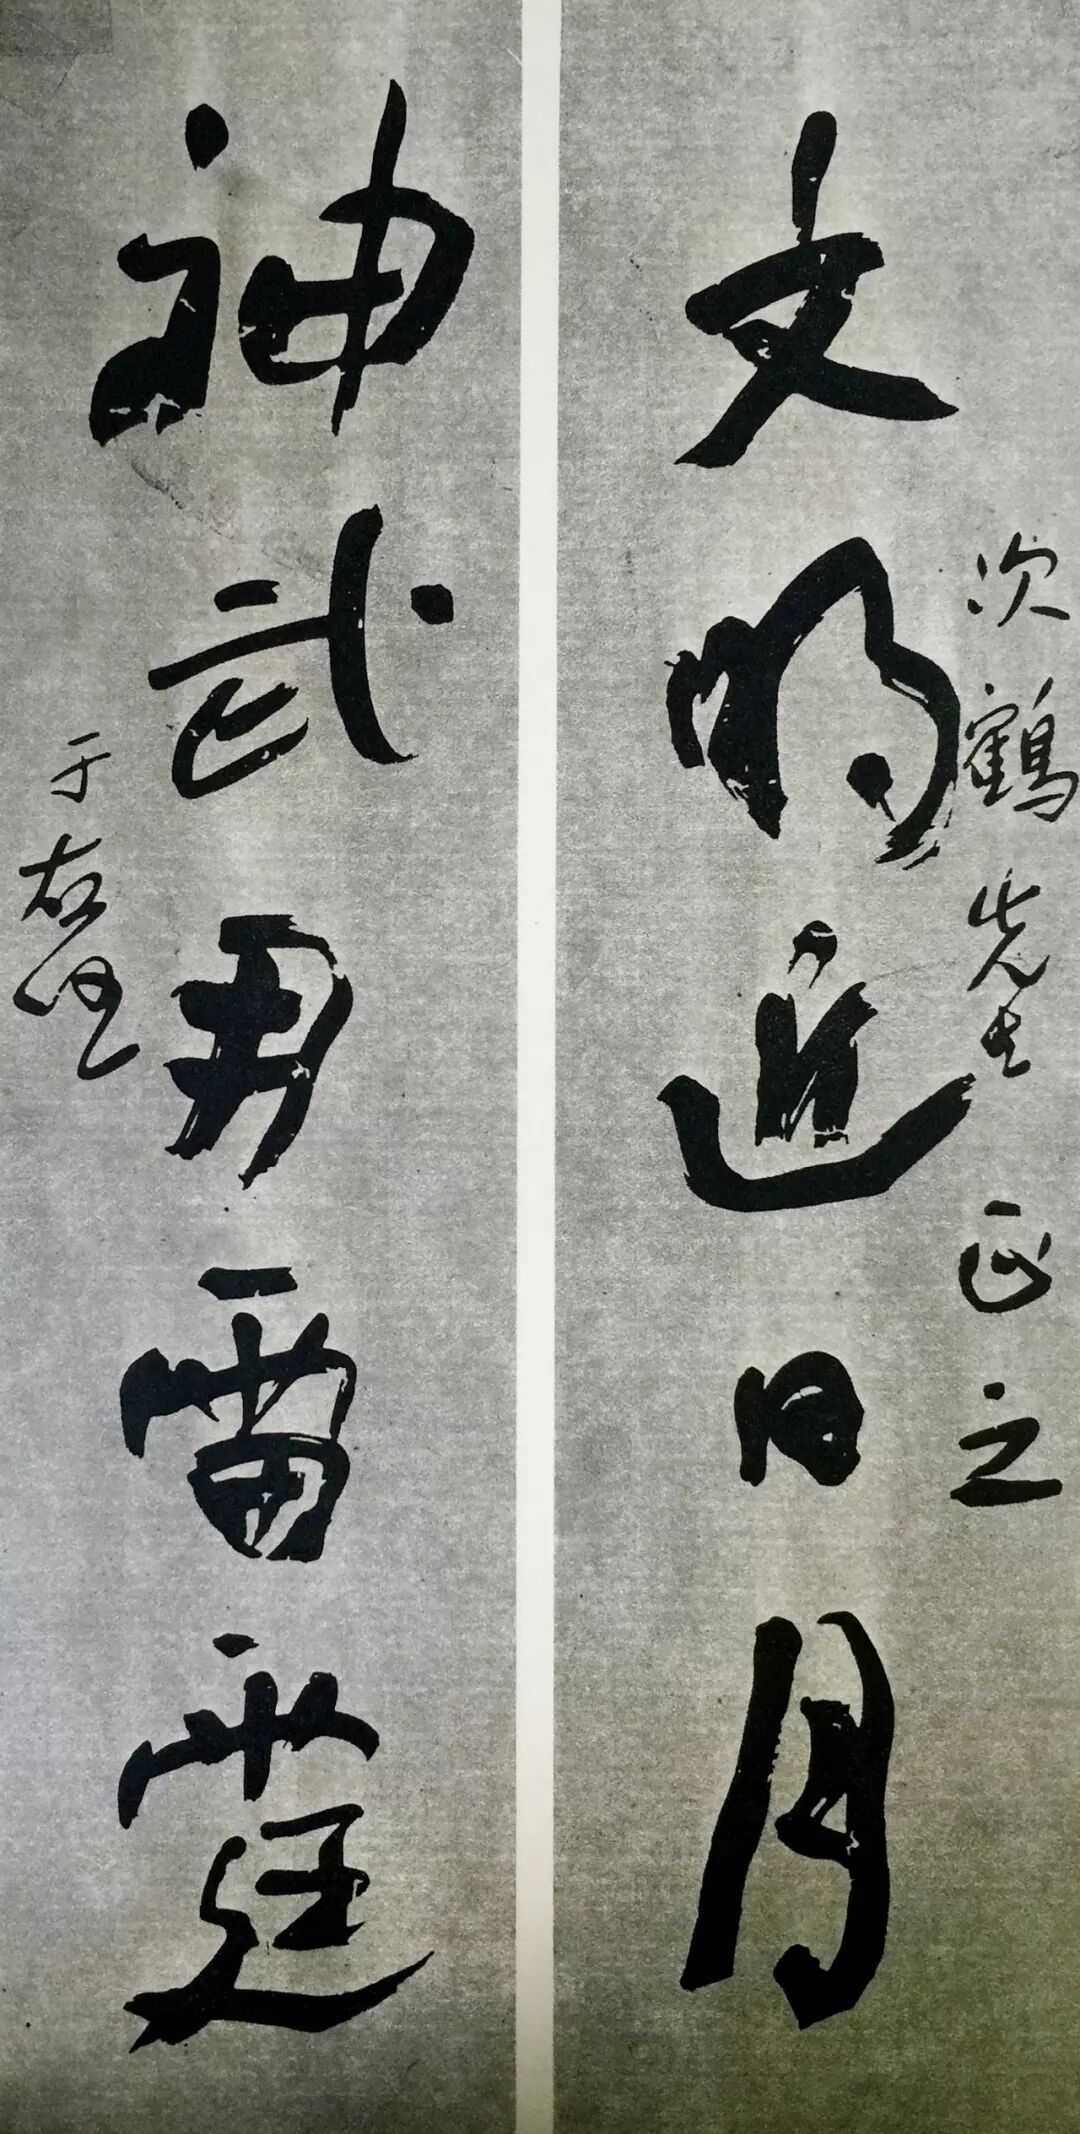 文明近日月
次鶴先生正之
神武勇雷霆
于右任